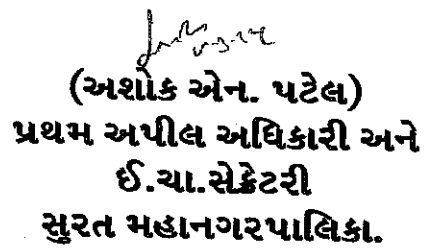 (અશોક એન. પટેલ)
પ્રથમ અપીલ અધિકારી અને
ઈ.ચા.સેક્રેટરી
સુરત મહાનગરપાલિકા.